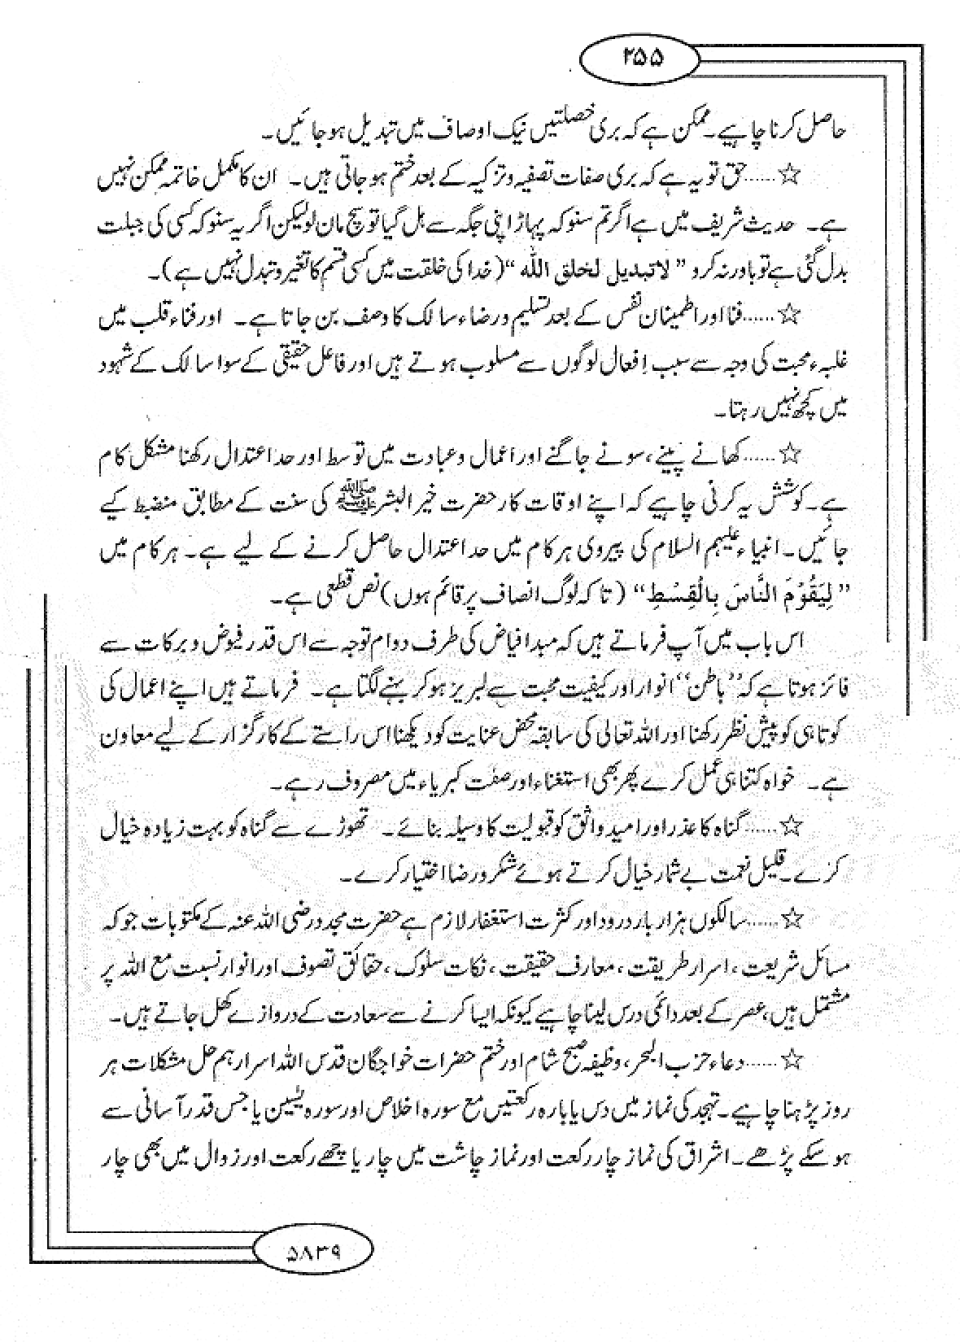 ۲۵۵
حاصل کرنا چاہیے۔ ممکن ہے کہ بری خصلتیں نیک اوصاف میں تبدیل ہو جائیں۔
☆......حق تو یہ ہے کہ بری صفات تصفیہ و تزکیہ کے بعد ختم ہو جاتی ہیں۔ ان کا مکمل خاتمہ ممکن نہیں
ہے۔ حدیث شریف میں ہے اگر تم سنو کہ پہاڑ اپنی جگہ سے ہل گیا تو سچ مان لو لیکن اگر یہ سنو کہ کسی کی جبلت
بدل گئی ہے تو باور نہ کرو ”لا تبدیل لخلق اللہ“ (خدا کی خلقت میں کسی قسم کا تغیر و تبدل نہیں ہے)۔
☆......فنا اور اطمینان نفس کے بعد تسلیم و رضاء سالک کا وصف بن جاتا ہے۔ اور فناء قلب میں
غلبہء محبت کی وجہ سے سبب افعال لوگوں سے مسلوب ہوتے ہیں اور فاعل حقیقی کے سوا سالک کے شہود
میں کچھ نہیں رہتا۔
☆......کھانے پینے، سونے جاگنے اور اعمال و عبادت میں توسط اور حد اعتدال رکھنا مشکل کام
ہے۔ کوشش یہ کرنی چاہیے کہ اپنے اوقات کار حضرت خیر البشر ﷺ کی سنت کے مطابق منضبط کیے
جائیں۔ انبیاء علیہم السلام کی پیروی ہر کام میں حد اعتدال حاصل کرنے کے لیے ہے۔ ہر کام میں
”لِيَقُوْمَ النَّاسَ بِالْقِسْطِ“ (تاکہ لوگ انصاف پر قائم ہوں) نص قطعی ہے۔
اس باب میں آپ فرماتے ہیں کہ مبدا فیاض کی طرف دوام توجہ سے اس قدر فیوض و برکات سے
فائز ہوتا ہے کہ ”باطن“ انوار اور کیفیت محبت سے لبریز ہو کر بہنے لگتا ہے۔ فرماتے ہیں اپنے اعمال کی
کوتاہی کو پیش نظر رکھنا اور اللہ تعالی کی سابقہ محض عنایت کو دیکھنا اس راستے کے کارگزار کے لیے معاون
ہے۔ خواہ کتنا ہی عمل کرے پھر بھی استغناء اور صفت کبریاء میں مصروف رہے۔
☆......گناہ کا عذر اور امید واثق کو قبولیت کا وسیلہ بنائے۔ تھوڑے سے گناہ کو بہت زیادہ خیال
کرے۔ قلیل نعمت بے شمار خیال کرتے ہوئے شکر و رضا اختیار کرے۔
☆......سالکوں ہزار بار درود اور کثرت استغفار لازم ہے حضرت مجدد رضی اللہ عنہ کے مکتوبات جو کہ
مسائل شریعت، اسرار طریقت، معارف حقیقت، نکات سلوک، حقائق تصوف اور انوار نسبت مع اللہ پر
مشتمل ہیں، عصر کے بعد دائمی درس لینا چاہیے کیونکہ ایسا کرنے سے سعادت کے دروازے کھل جاتے ہیں۔
☆......دعاء حزب البحر، وظیفہ صبح شام اور ختم حضرات خواجگان قدس اللہ اسرارہم حل مشکلات ہر
روز پڑھنا چاہیے۔ تہجد کی نماز میں دس یا بارہ رکعتیں مع سورہ اخلاص اور سورہ یٰسین یا جس قدر آسانی سے
ہو سکے پڑھے۔ اشراق کی نماز چار رکعت اور نماز چاشت میں چار یا چھے رکعت اور زوال میں بھی چار
۵۸۳۹